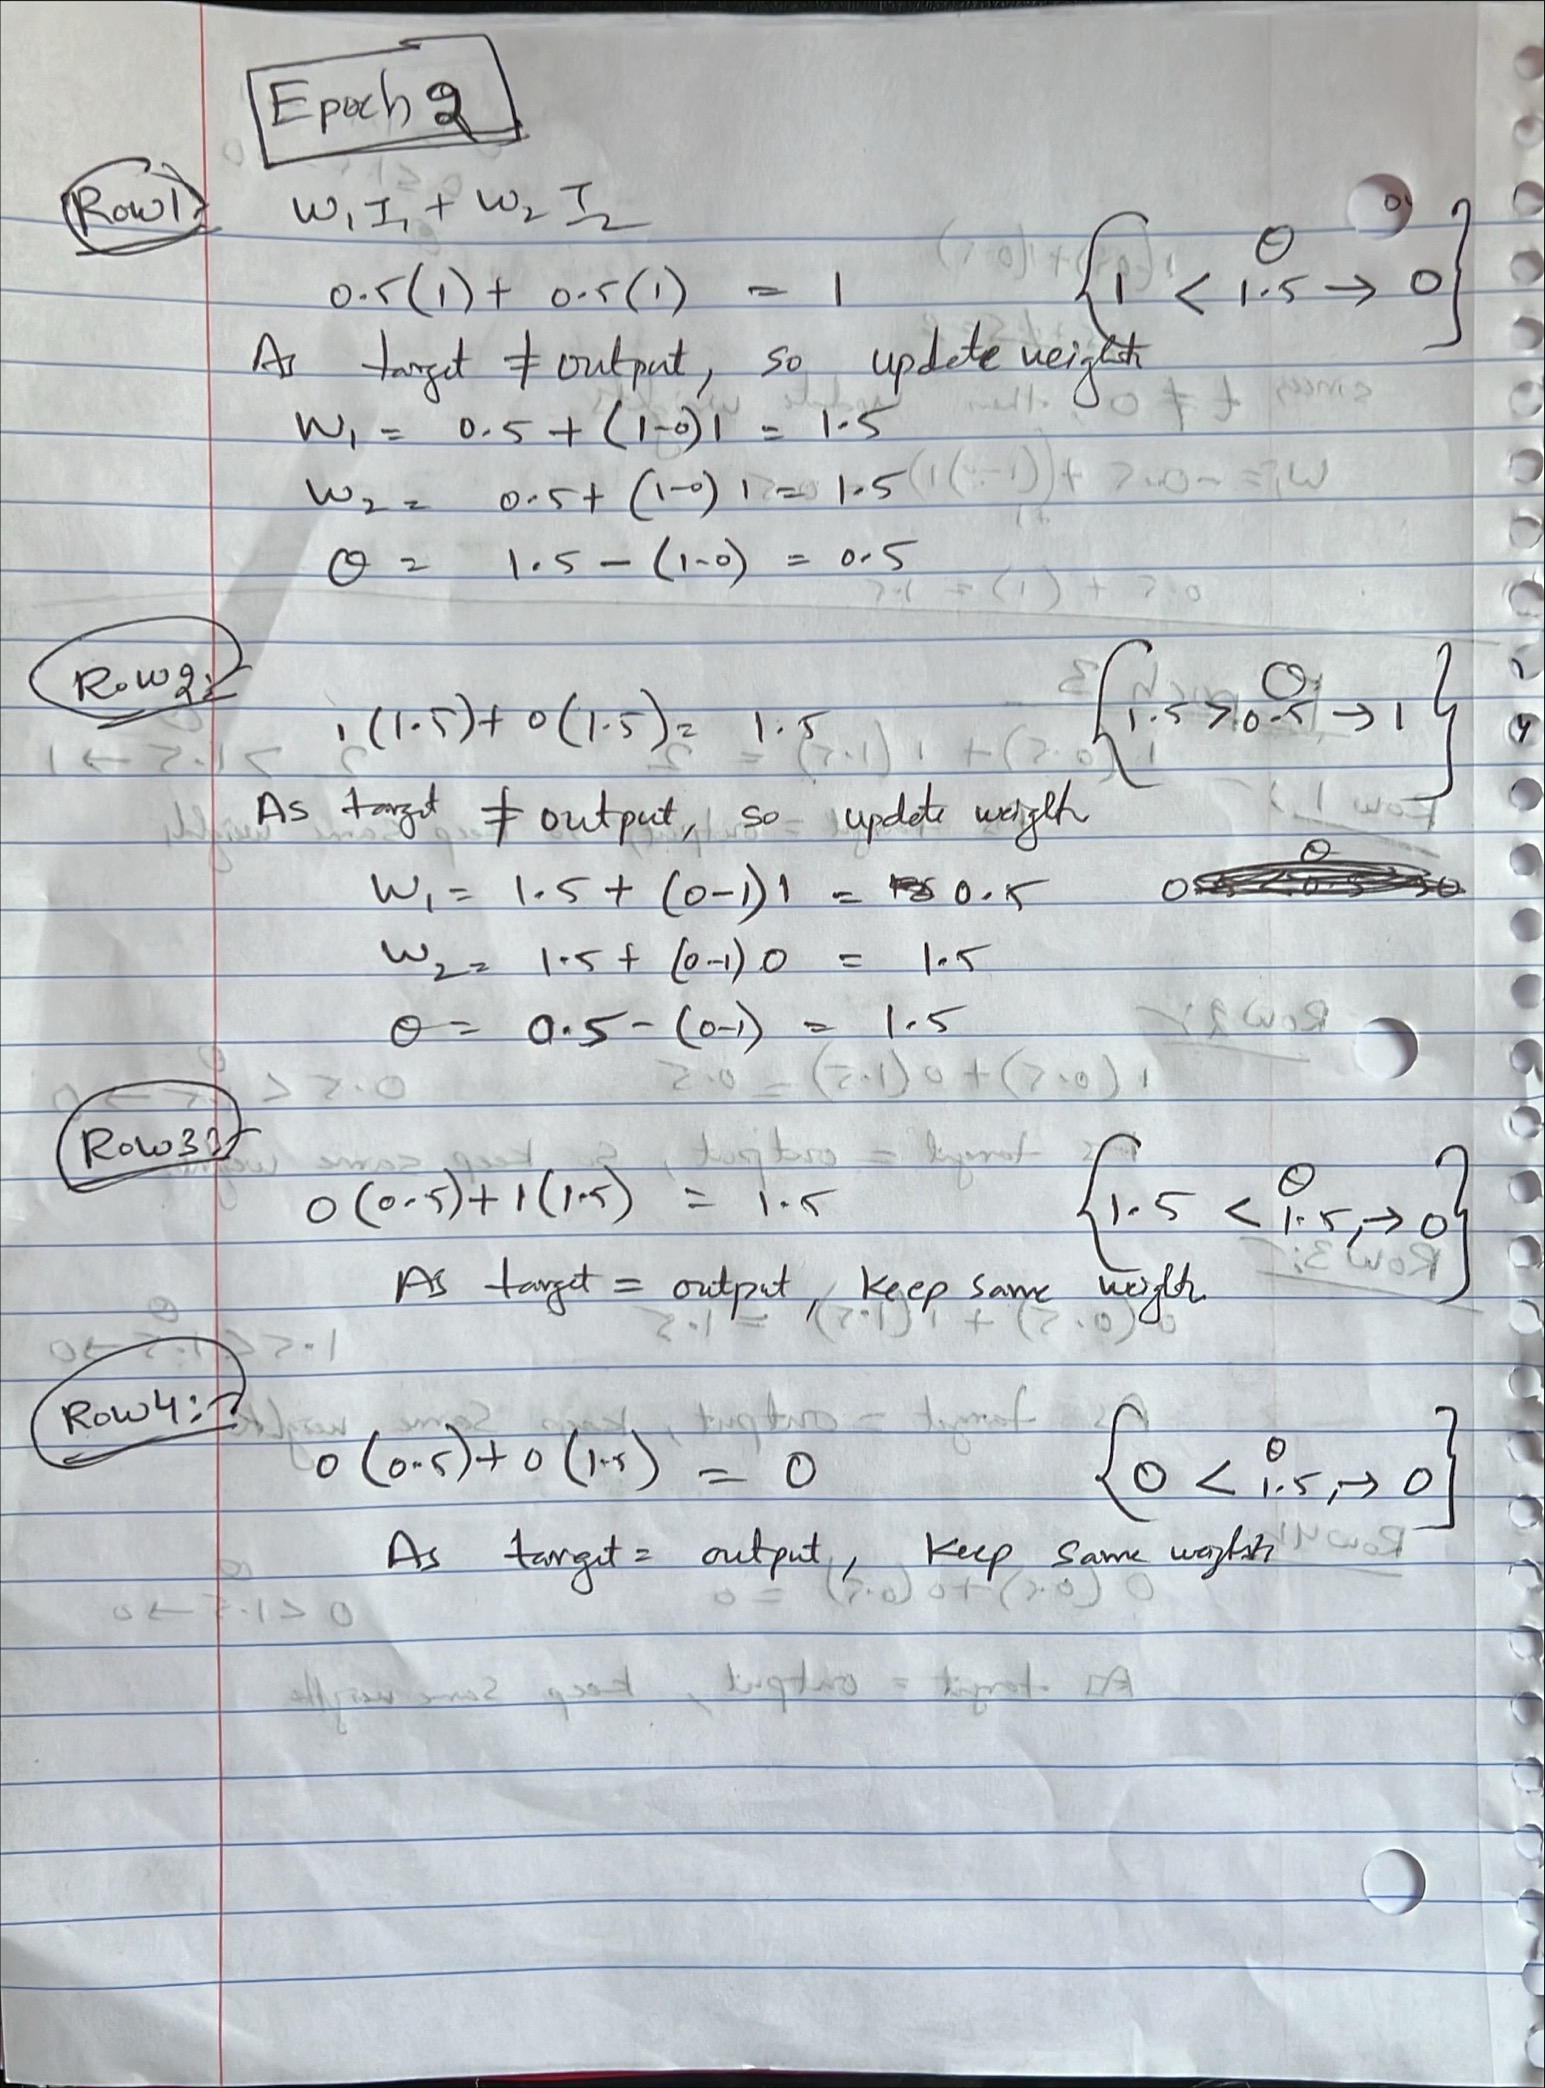 Epoch 2
Row1: W₁I₁ + W₂I₂
0.5(1) + 0.5(1) = 1 {1 < θ 1.5 → 0}
As target ≠ output, so update weights
W₁ = 0.5 + (1-0)1 = 1.5
W₂ = 0.5 + (1-0)1 = 1.5
θ = 1.5 - (1-0) = 0.5
Row2:
1(1.5) + 0(1.5) = 1.5 {1.5 > θ 0.5 → 1}
As target ≠ output, so update weigth
W₁ = 1.5 + (0-1)1 = 0.5
W₂ = 1.5 + (0-1)0 = 1.5
θ = 0.5 - (0-1) = 1.5
Row3:
0(0.5) + 1(1.5) = 1.5 {1.5 < θ 1.5, → 0}
As target = output, keep same weigth
Row4:
0(0.5) + 0(1.5) = 0 {0 < θ 1.5, → 0}
As target = output, keep same weights